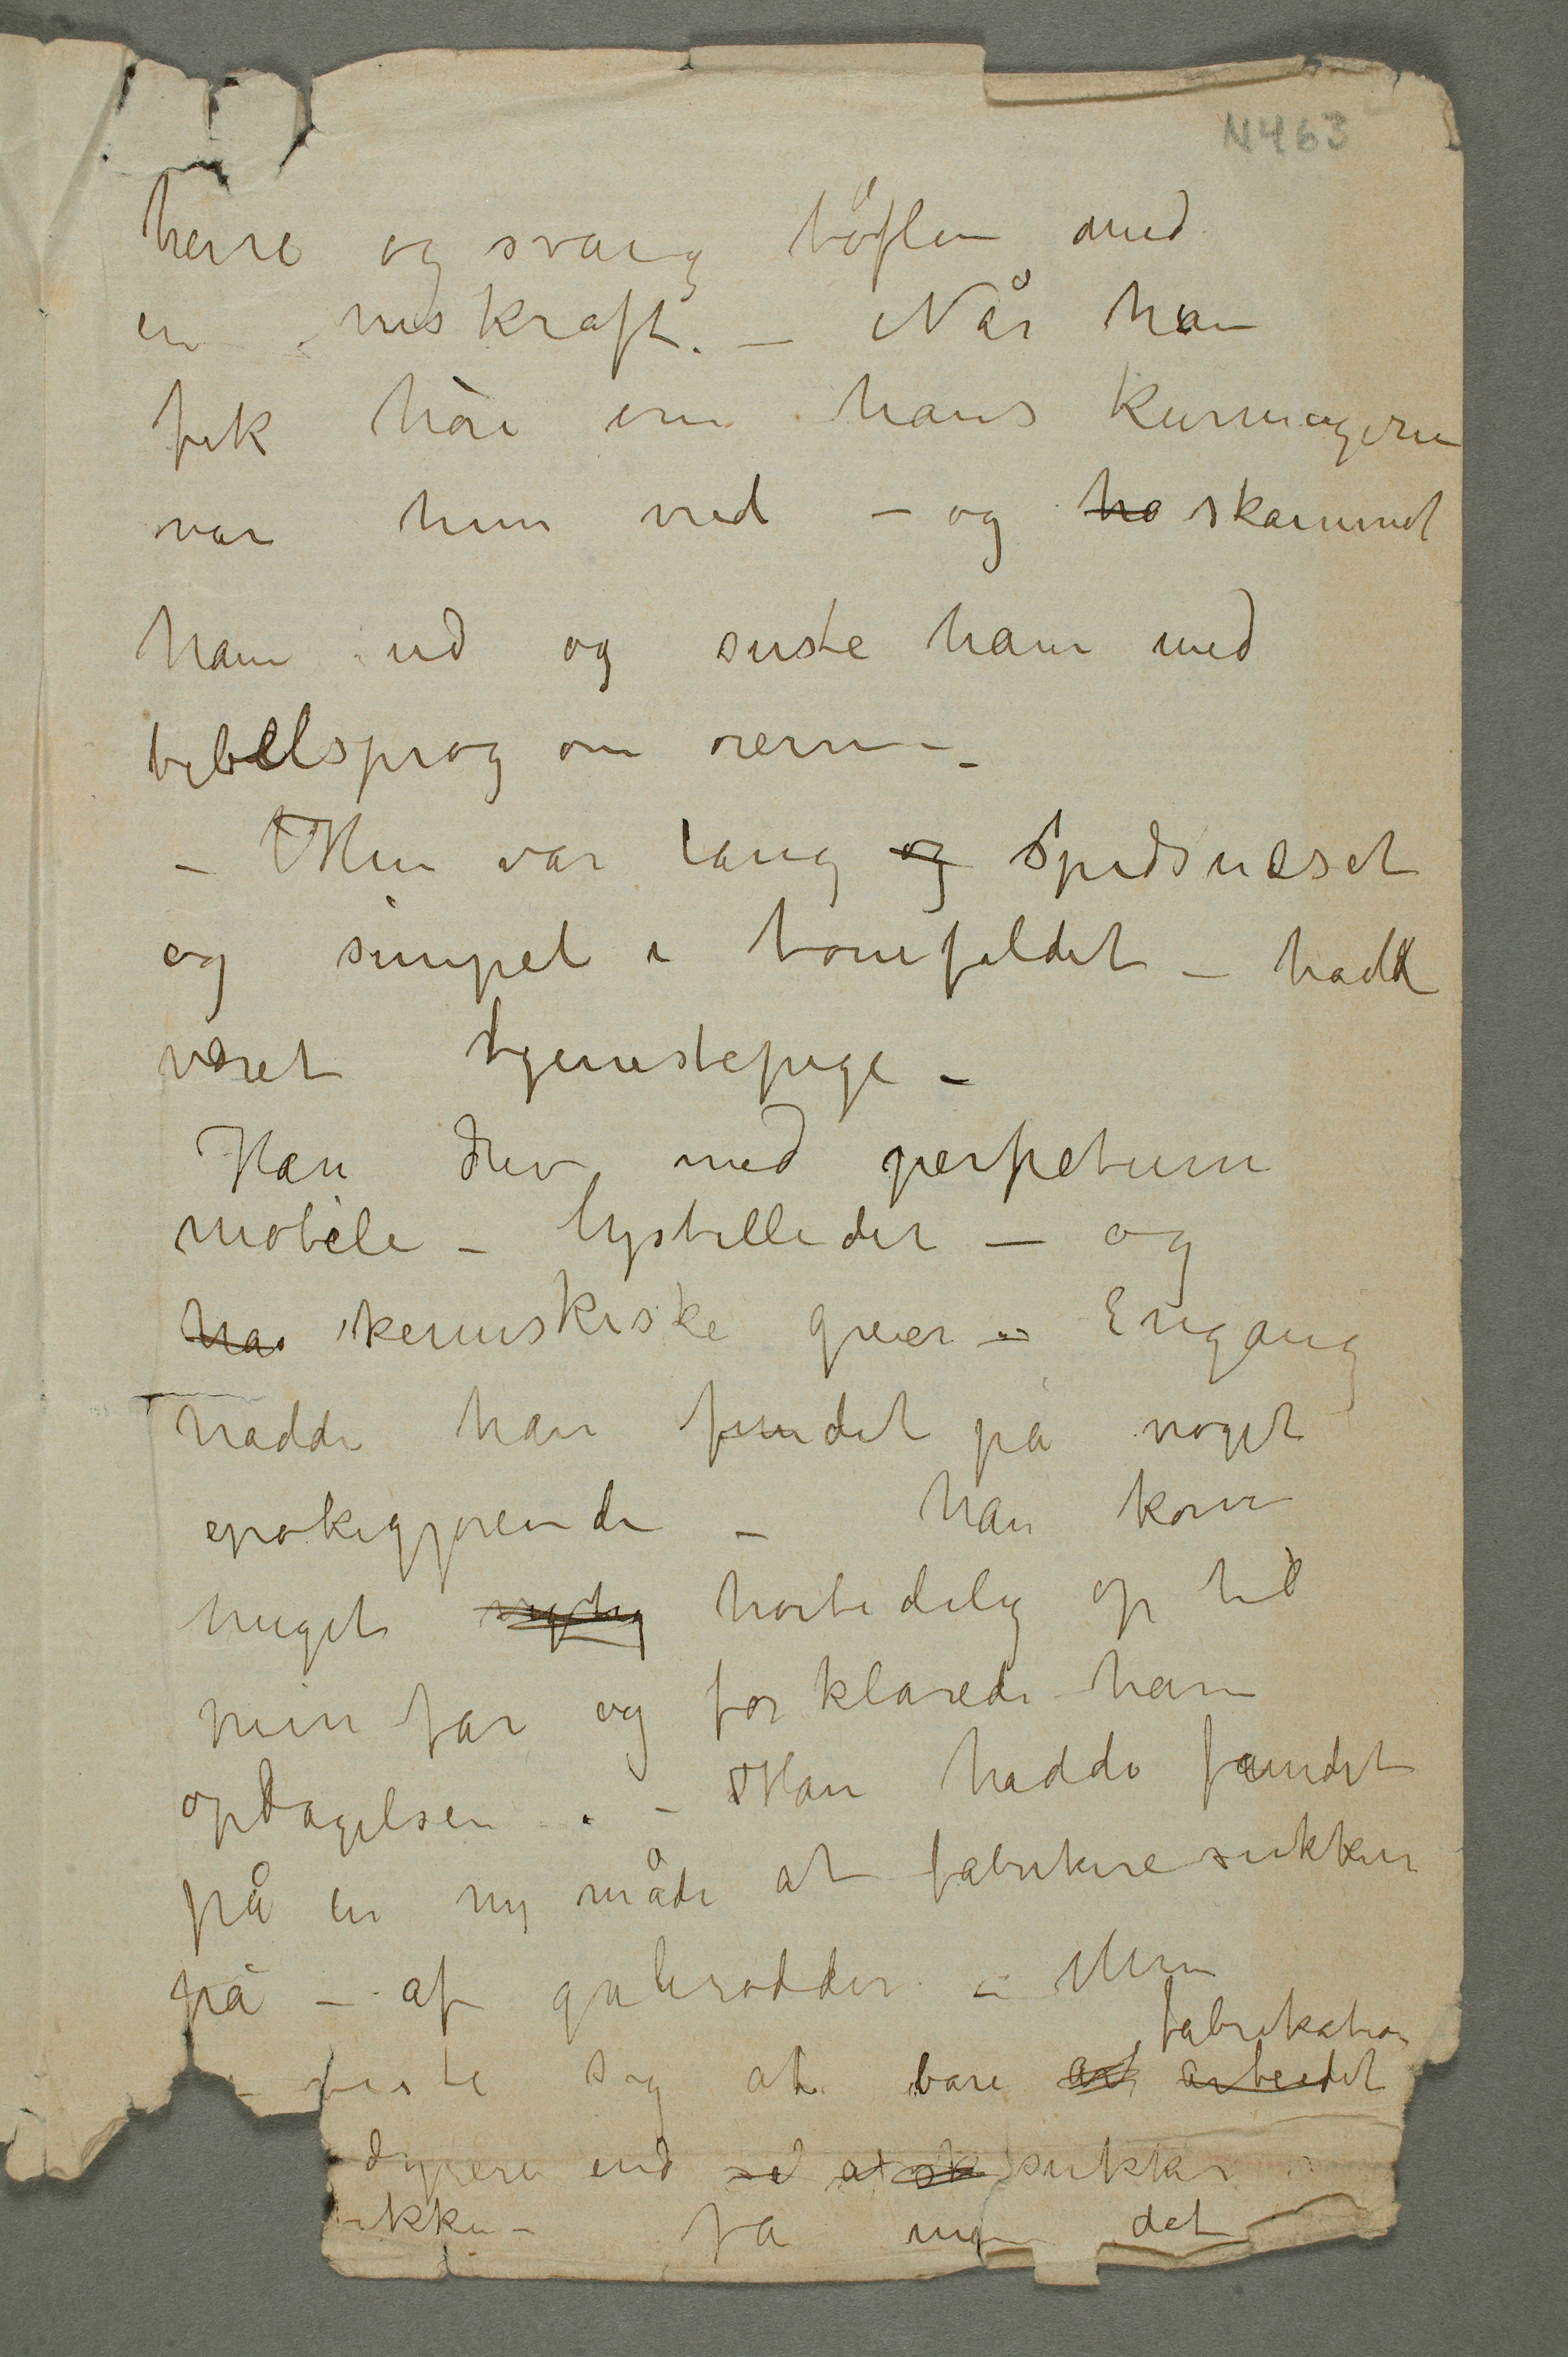 N 463
herre og svang töflen med
en vis kraft. – Når hun
fik höre om hans kurmageren
var hun vred – og ha skammet
ham ud og suste ham med
bibelsprog om ørerne –
– Hun var lang og spidsnæset
og simpel i tonefaldet – hadde
været tjenestepige –
Han drev med perpetum
mobile – lysbilleder – og
has kemiskiske greer – Engang
hadde han fundet på noget
epokegjørende – han kom
meget høitidelig op til
min far og forklarede ham
opdagelsen . – Han hadde fundet
på en ny måde at fabrikere sukker
på – af gulerødder – Men
fabrikation
viste sig at bare art arbeidet
dyrere end sukker
ikke – få det